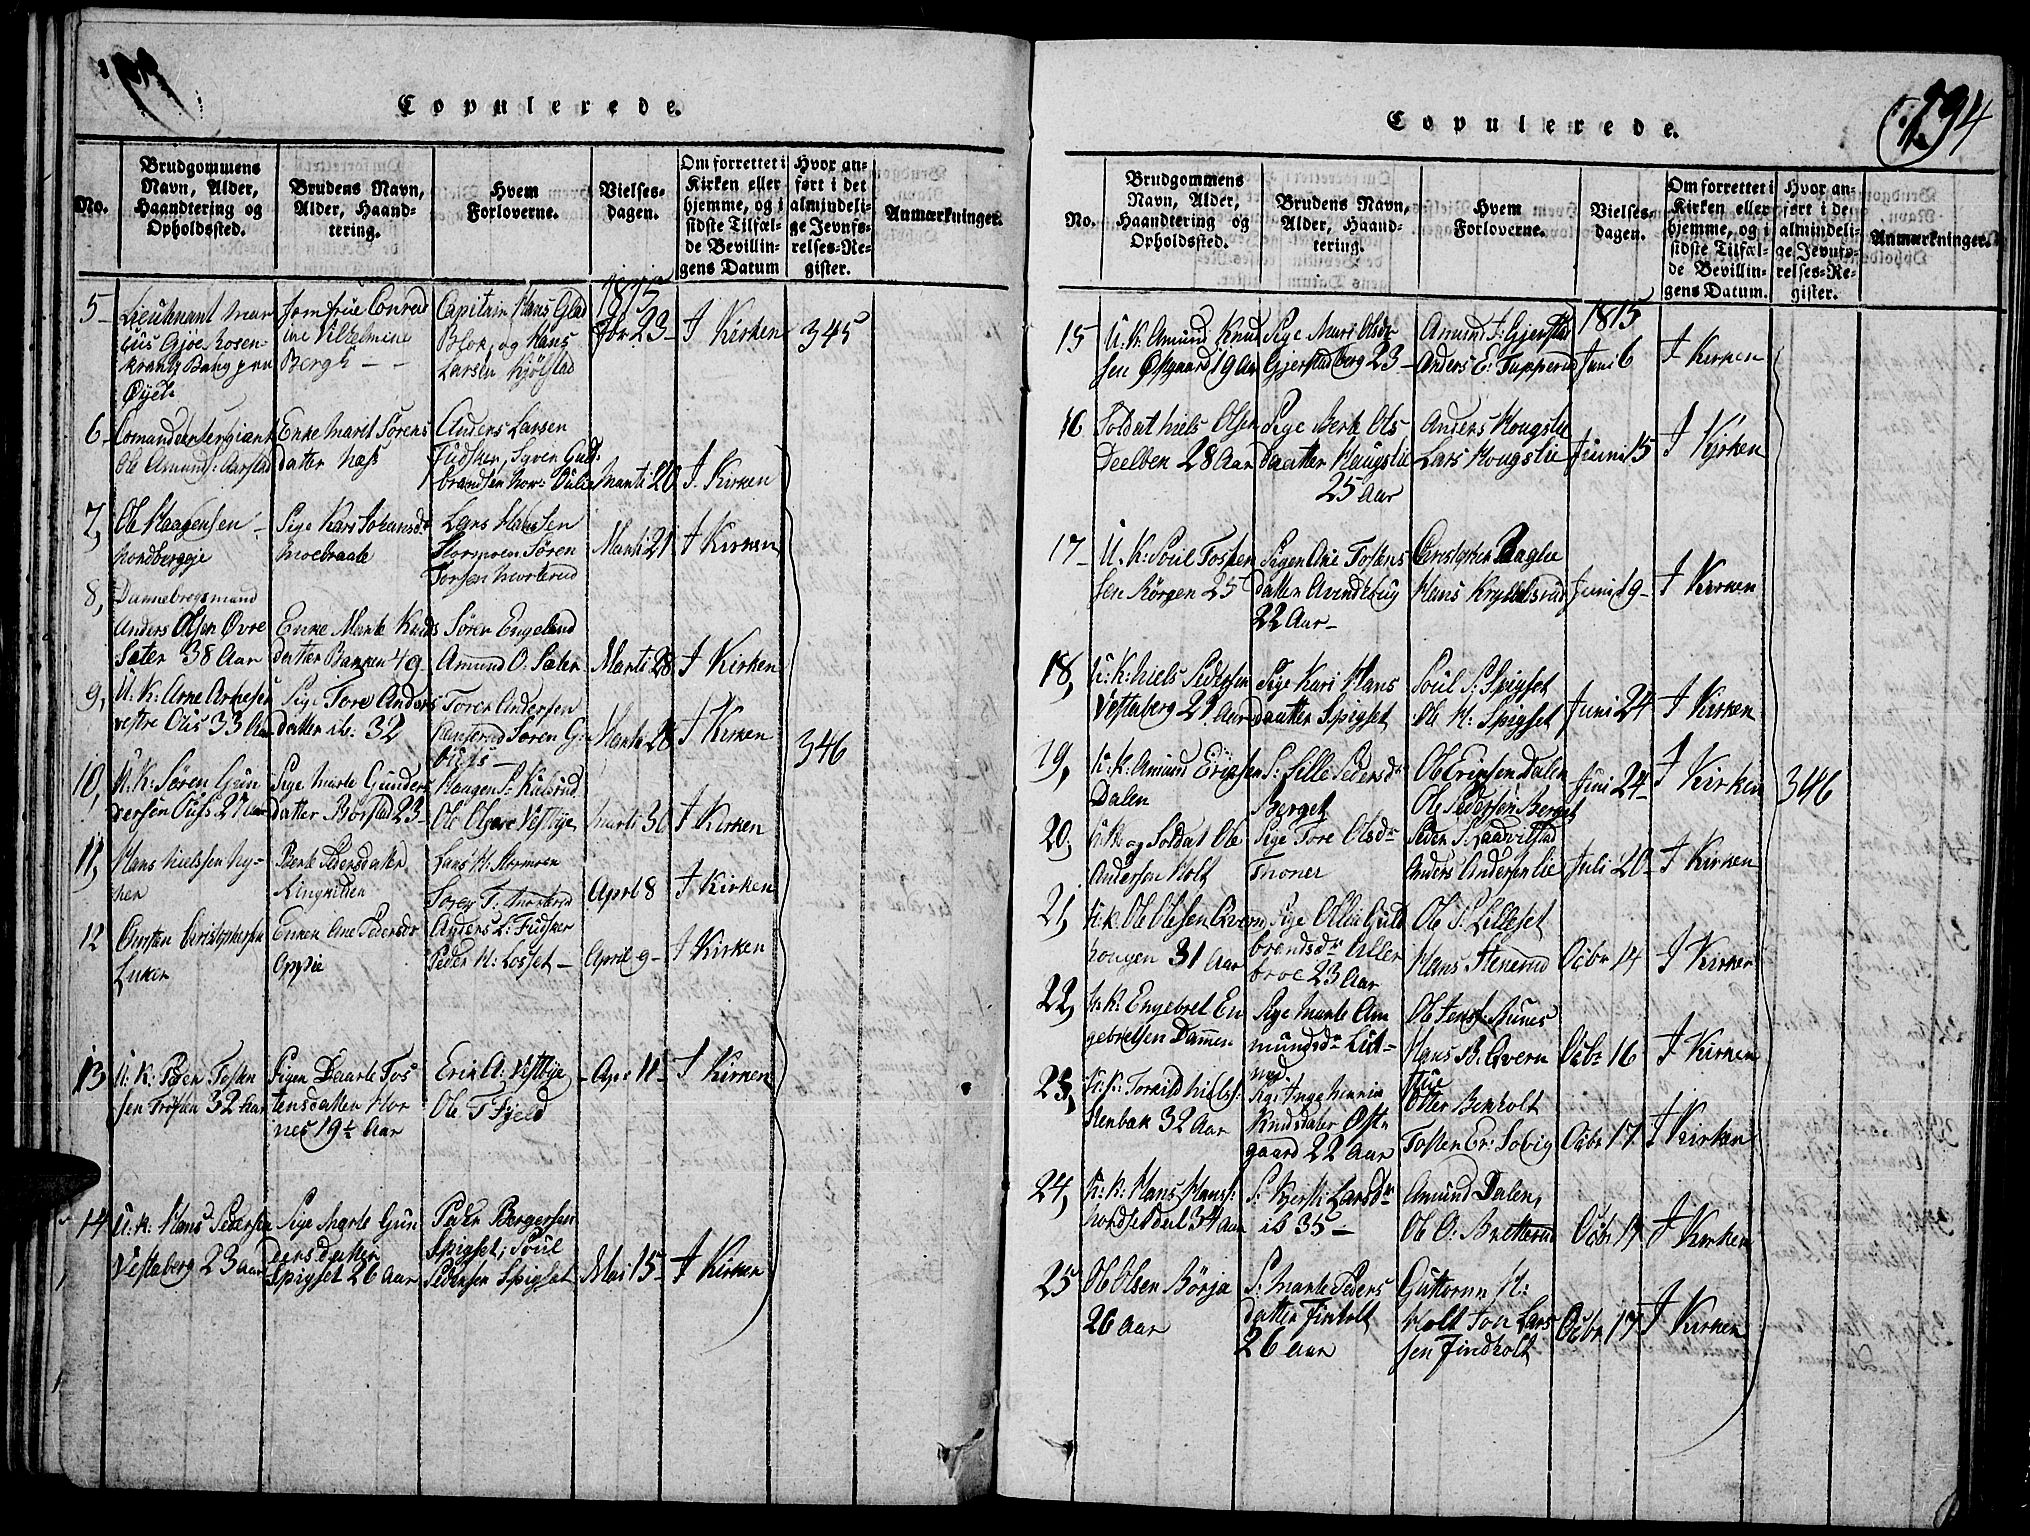 Copulerede.
No.
Brudgommens Navn, Alder, Haandtering og Opholdssted.
Brudens Navn, Alder, Haandtering.
Hvem Forloverne.
Vielsesdagen.
Om forrettet i Kirken eller hjemme, og i sidste Tilfælde Bevillingens Datum
Hvor anført i det almindelige Jevnførelses-Register.
Anmærkninger.
1815
5
Lieutnant
Øyet
Jomfrue Conrad
ine Vilhelmine
Bergh
Capitain Hans Glad
Blok, og Hans
Larsen Kjølstad
23
I Kirken
345
6
Ole Amunds: Aarstad
Enke Marit Sørens
datter Næss
Anders Larsen
Fudsker, Syver Guld
brandsen
Marti 20
I Kirken
7,
Ole Haagensen
Nordbergeje
Sige Kari Johansdr
Moebraate
Lars Hansen
Stormoen Søren
Marti 21
I Kirken
8,
Dannebrogsmand
Anders Olsen Øvre
Sæter 38 Aar
Enke Marte Knuds
datter Bakken 49
Søren Engelund
Amund O. Sæter
Marti 28
I Kirken
9,
U. K: Arne Arnesen
vestre Ous 33 Aar
Sige Tore Anders
datter ib: 32
Torer Andersen
Søren
Marti 28
I Kirken
346
10,
U. K: Søren Gun
dersen Ous 27 aar
Sige Marte Gunders
datter Børstad 23
Haagen S:
Ole Olsen Vestbye
Marti 30
I Kirken
11,
Hans Nielssen Ny-
Berte Pedersdatter
Lars H. Stormoen
Søren T.
April 8
I Kirken
12
Christophersen
Enken Ane Pedersdr
Anders L: Fudsker
Peder H: Losset
April 9
I Kirken
13
U. K: Tosten
sen 32 Aar
Pigen Dorte Tos
tensdatter Hor
nes 19½ Aar
Erik A: Vestbye
Ole T Fjeld
Apr: 11
I Kirken
14
U. K. Hans Pedersen
Vestaberg 23 aar
Sige Marte Gun
dersdatter
Spigset 26 aar
Peder Bergersen
Spigset, Poul
Pedersen Spigset
Mai 15
I Kirken
194
Copulerede.
No.
Brudgommens Navn, Alder, Haandtering og Opholdssted.
Brudens Navn, Alder, Haandtering.
Hvem Forloverne.
Vielsesdagen.
Om forrettet i Kirken eller hjemme, og i sidste Tilfælde Bevillingens Datum.
Hvor anført i det almindelige Jevnførelses-Register.
Anmærkninger.
1815
15
U. K. Amund Knud
sen Østgaard 19 Aar
Sige Mari Olsdr
Gjerstadberg 23
Amund J: Gjerstad
Anders E: Tupperud
Juni 6
I Kirken
16
Soldat Niels Olsen
Deelben 28 Aar
Sige Berte Ols
daatter Haugslie
25 Aar
Anders Hougslie
Lars Hougslie
Juni 15
I Kyrken
17
U. K: Poul Tosten
sen Rørgen 25
Pigen Ane Tostens
datter Avindebug
22 Aar
Christopher
Hans
Juni 19
I Kirken
18,
U: K: Niels Pedersen
Vestaberg 21 Aar
Sige Kari Hans
daatter Spigset
Poul P: Spigset
Ole H: Spigset
Juni 24
I Kirken
19,
U: K: Amund Ericksen
Dalen
S: Sille Pedersdr
Berget
Ole Ericksen Dalen
Ole Pedersen Berget
Juni 24
I Kirken
346
20,
U: K: og Soldat Ole
Andersen Holt
Sige Tore Olsdr
Thoner
Peder
Anders Andersen Lie
Juli 20
I Kirken
21,
U: K: Ole Olesen Qvern
hougen 31 Aar
Sige Ollia Guld
brandsdr Uller
broe 23 Aar
Ole P: Lilleset
Hans Stenerud
Octbr 14
I Kirken
22,
U: K: Engebret En
gebretsen Dammen
Sige Marte Am
mundsdr Lut-
Ole Jens: Bunes
Hans B: Qvern
Octbr 16
I Kirken
23,
U: K: Torkild Niels:
Stenbak 32 Aar
Sige Inge
Knudsdater Øst
gaard 22 Aar
Otter Benholt
Tosten Er: Solvig
Octbr 17
I Kirken
24,
U: K: Hans Hans:
34 aar
S: Larsdr
ib 35
Amund Dalen,
Ole O:
Octbr 17
I Kirken
25
Ole Olsen Børja
26 Aar
S: Marte Peders
datter Finholt
26 Aar
Guttorm H:
Holt Lars
sen Findholt
Octbr 17
I Kirken